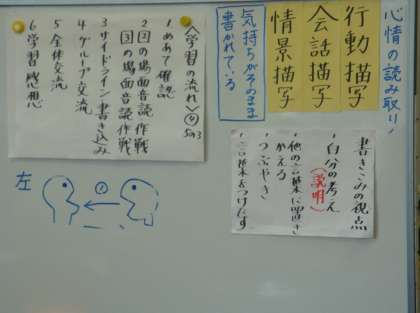 心情の読み取り
行動描写
会話描写
情景描写
気持ちがそのまま
書かれている
〈学習の流れ〉
1 めあて確認
2 国の場面音読作戦
国の場面音読作戦
3 サイドライン書き込み
4 グループ交流
5 全体交流
6 学習感想
書きこみの視点
・自分の考え
(説明)
・他の言葉に置き
かえる
・つぶやき
・言葉をつけたす
左
①